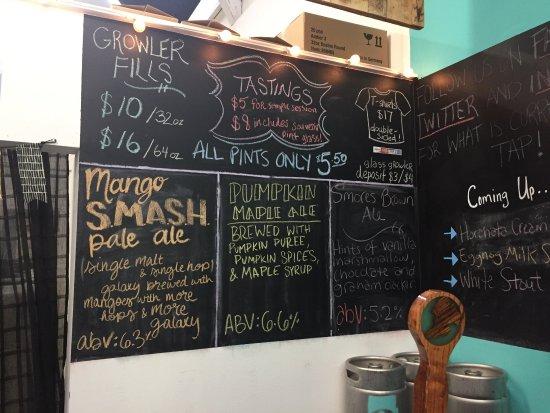 GROWLER
FILLS
$10/32oz
$16/64oz
TASTINGS
$5 for sample session
$8 includes souvenir
pint glass!
ALL PINTS ONLY $5.50
T-shirts
$17
double-
sided!
glass growler
deposit $3/$4
Mango
SMASH
pale ale
(single malt
& single hop)
galaxy brewed with
mangoes with more
hops & more
galaxy
abv: 6.3%
PUMPKIN
MAPLE ALE
BREWED WITH
PUMPKIN PUREE,
PUMPKIN SPICES,
& MAPLE SYRUP
ABV: 6.6%
Smores Brown
ALE
Hints of vanilla
marshmallow,
chocolate and
graham cracker
abv: 5.2%
FOLLOW US ON
TWITTER AND IN
FOR WHAT IS
TAP!
Coming Up..
Horchata Cream
Eggnog Milk S
White Stout